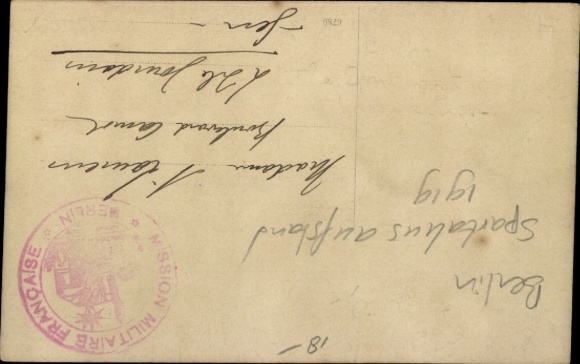 18-
Berlin
Spartakus aufstand
1919
MISSION MILITAIRE FRANÇAISE
* BERLIN *
Madame Laurens
Boulevard Carnot
L'Isle Jourdain
Gers -